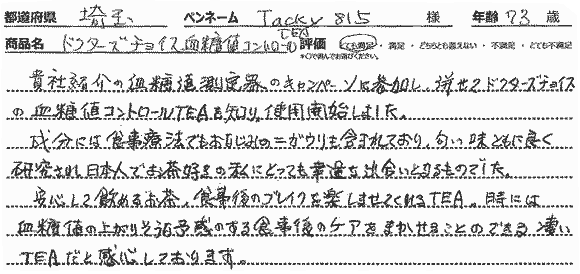 都道府県 埼玉 ペンネーム Tacky815 様 年齢 73 歳
商品名 ドクターズチョイス血糖値コントロールTEA 評価 とても満足 ・ 満足 ・ どちらとも言えない ・ 不満足 ・ とても不満足
※○で囲んでお選びください。
貴社紹介の血糖値測定器のキャンペーンに参加し、併せてドクターズチョイス
の血糖値コントロールTEAを知り、使用開始しました。
成分には食事療法でもおなじみのニガウリも含まれており、匂い味ともに良く
研究され日本人でお茶好きの私にとっても幸運な出会いとなるものでした。
安心して飲めるお茶、食事後のブレイクを楽しませてくれるTEA。時には
血糖値の上がりそうな予感のする食事後のケアをまかせることのできる凄い
TEAだと感心しております。